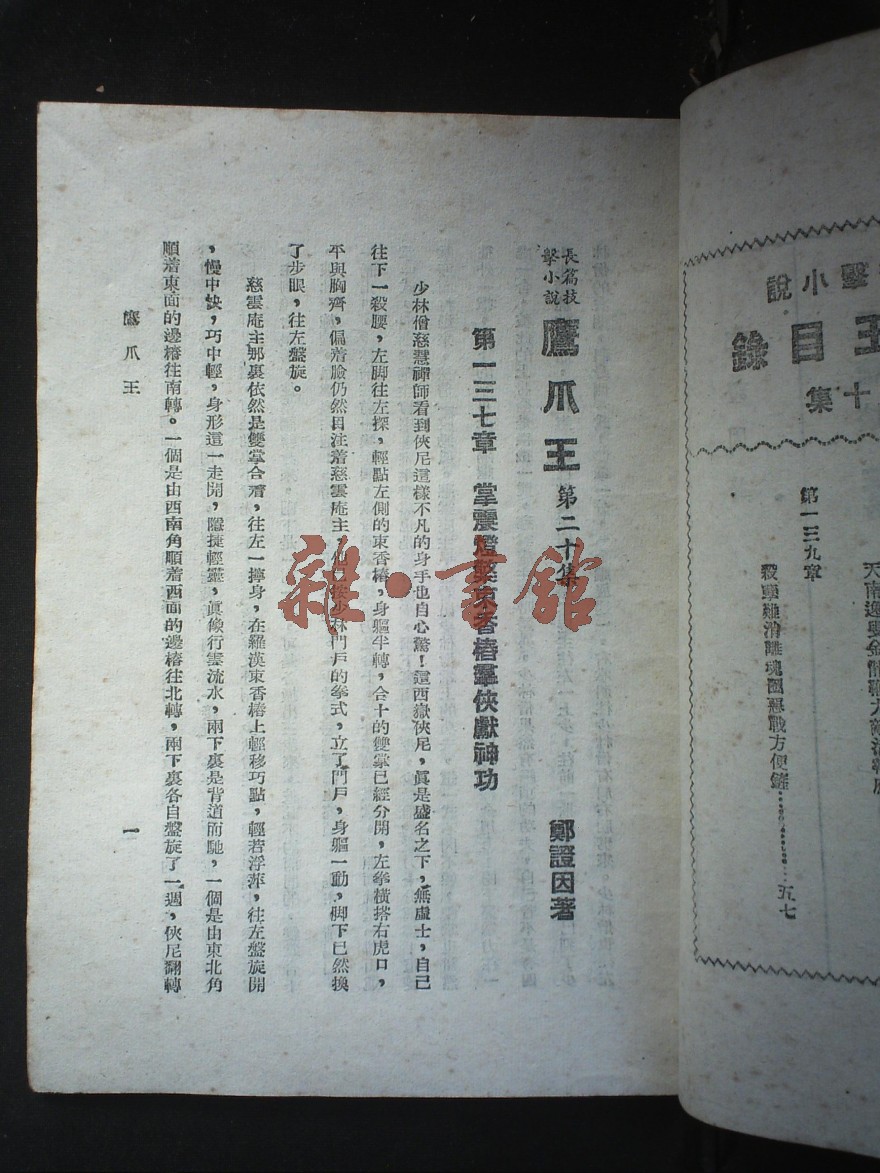 擊小說
王目錄
十集
第一三九章
五七
長篇技擊小說
鷹爪王 第二十集
鄭證因著
第一三七章 掌震燈 束香樁羣俠獻神功
少林僧慈慧禪師看到俠尼這樣不凡的身手也自心驚！這西嶽俠尼，眞是盛名之下，無虛士，自己
往下一殺腰，左脚往左探，輕點左側的東香樁，身軀半轉，合十的雙掌已經分開，左拳橫搭右虎口，
平與胸齊，偏着臉仍然目注着慈雲庵主，他已按少林門戶的拳式，立了門戶，身軀一動，脚下已然換
了步眼，往左盤旋。
慈雲庵主那裏依然是雙掌合著，往左一擰身，在羅漢東香樁上輕移巧點，輕若浮萍，往左盤旋開
，慢中快，巧中輕，身形這一走開，隱捷輕靈，眞像行雲流水，兩下裏是背道而馳，一個是由東北角
順着東面的邊樁往南轉。一個是由西南角順着西面的邊樁往北轉，兩下裏各自盤旋了一週，俠尼翻轉
鷹爪王
一
雜·書館